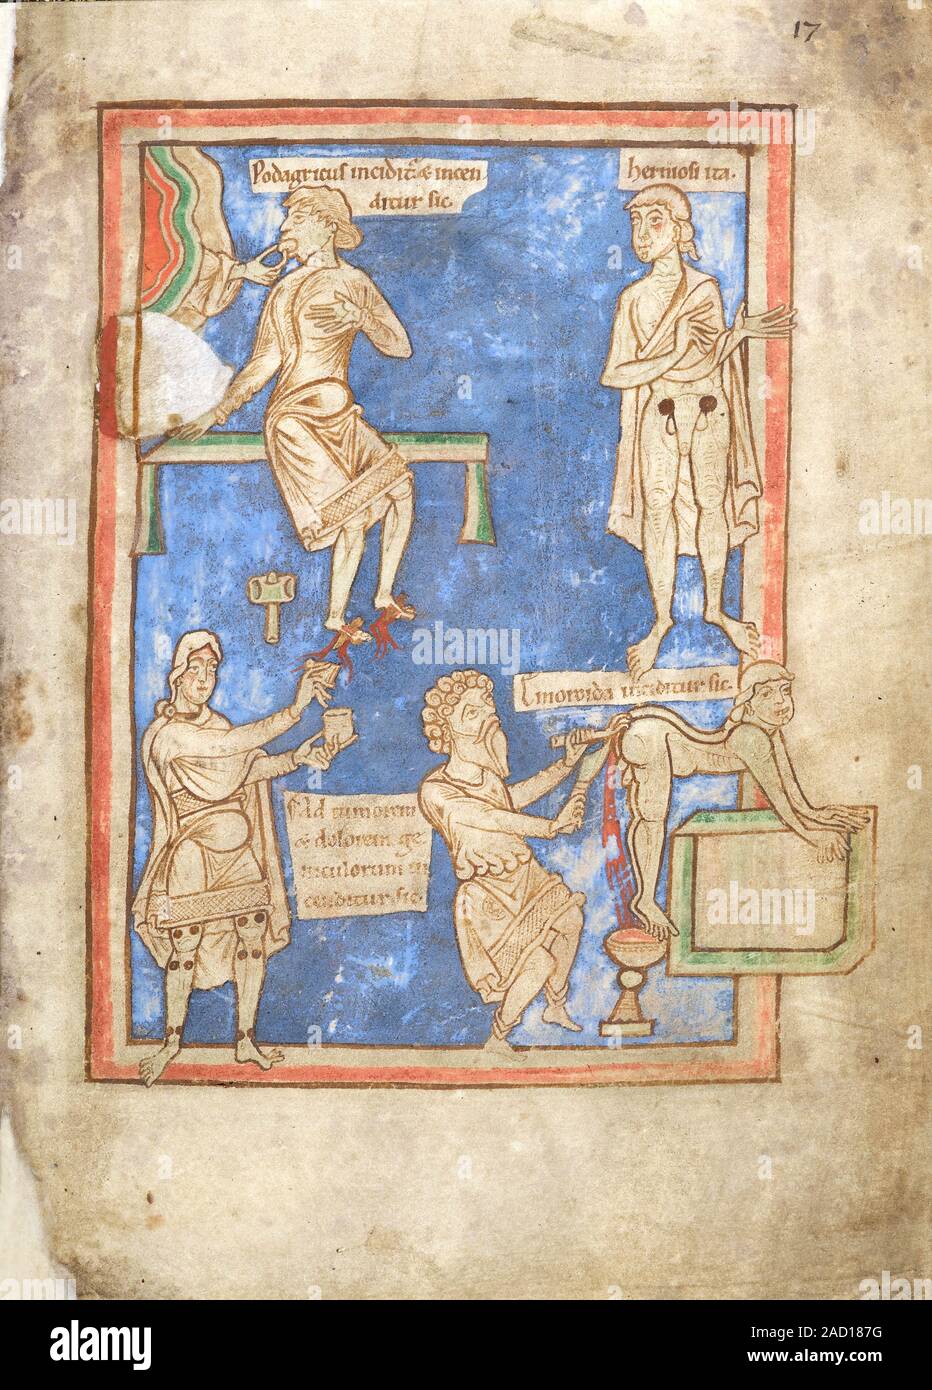 17
Podagricus incidit᷑ & incen
ditur sic.
hermosi ita.
Emorrida inciditur sic.
Ad tumorem
& dolorem ge
niculorum in
cenditur sic.
alamy
Image ID: 2AD187G
www.alamy.com